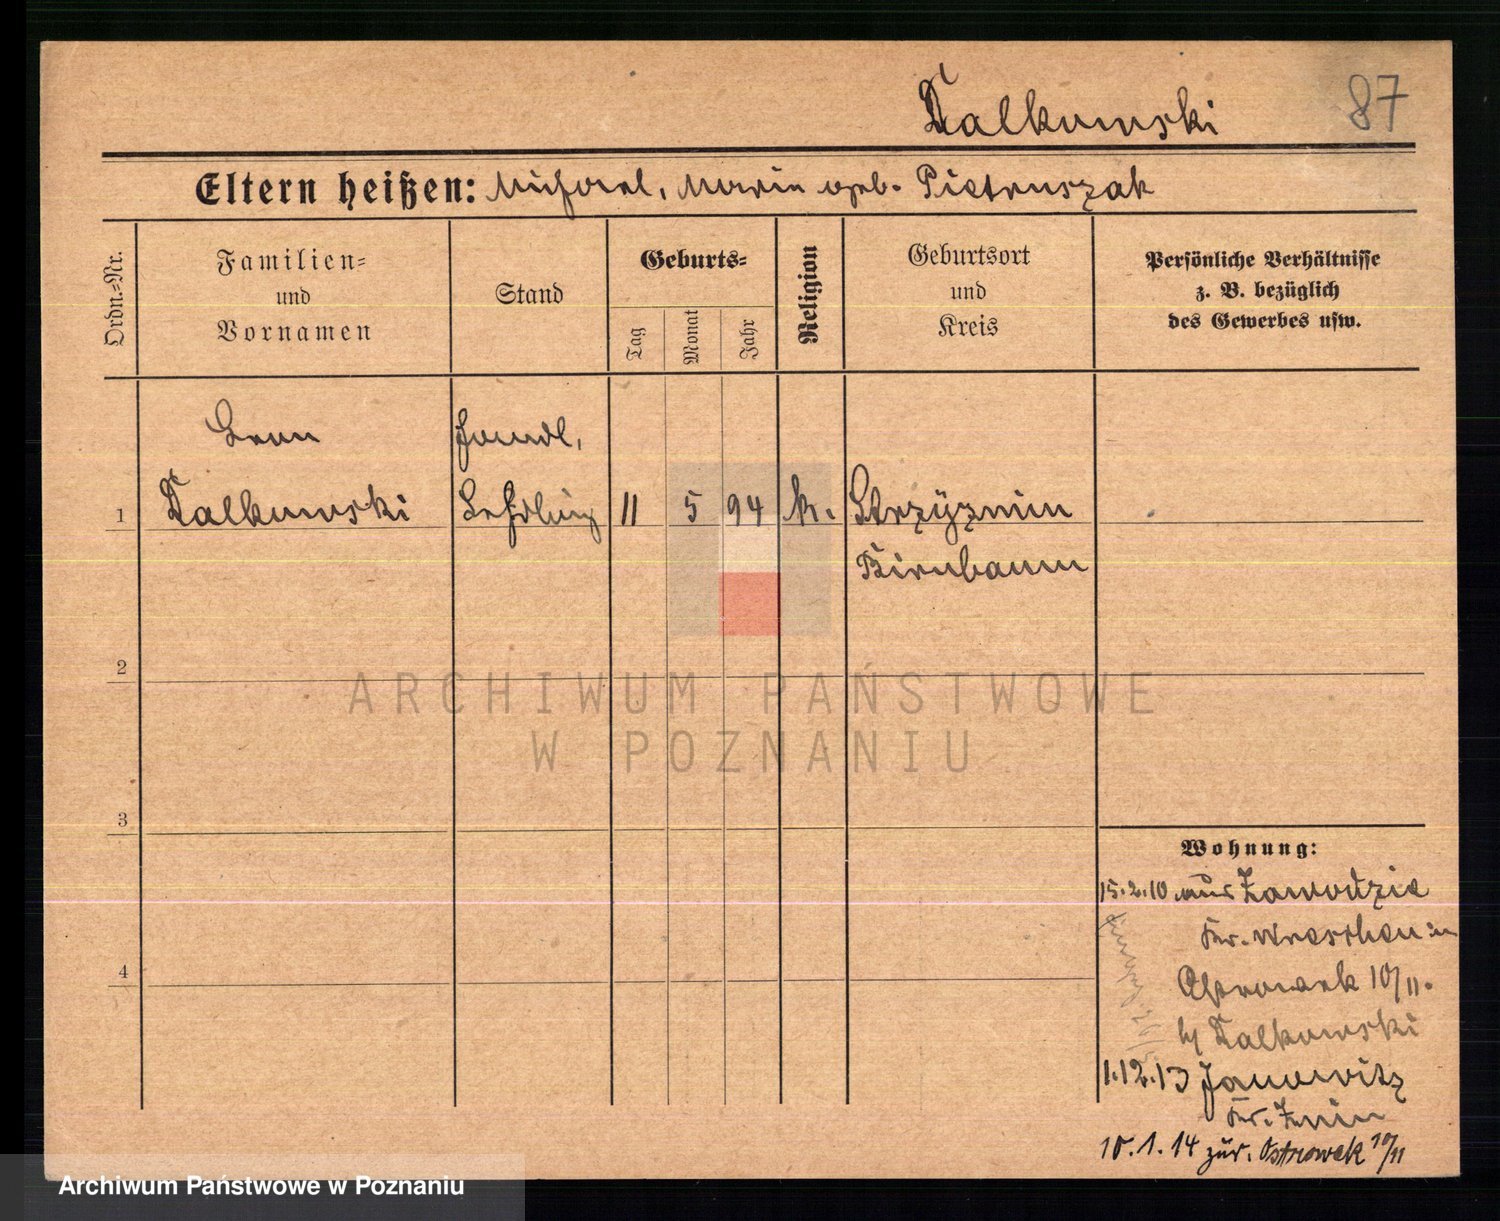 Dalkowski 87
Eltern heißen: Michael, Maria geb. Pietruszak
Ordn.-Nr.
Familien-
und
Vornamen
Stand
Geburts-
Tag
Monat
Jahr
Religion
Geburtsort
und
Kreis
Persönliche Verhältnisse
z. B. bezüglich
des Gewerbes usw.
Leon Handl.
1 Dalkowski Lehrling 11 5 94 k. Strzyzmin
Birnbaum
2
ARCHIWUM PAŃSTWOWE
W POZNANIU
3
Wohnung:
15.2.10 aus Zawodzie
Kr. Wreschen in
4
Ostrowek 10/11.
b/ Dalkowski
1.12.13 Janowitz
Kr. Znin
10.1.14 zur. Ostrowek 10/11
Archiwum Państwowe w Poznaniu